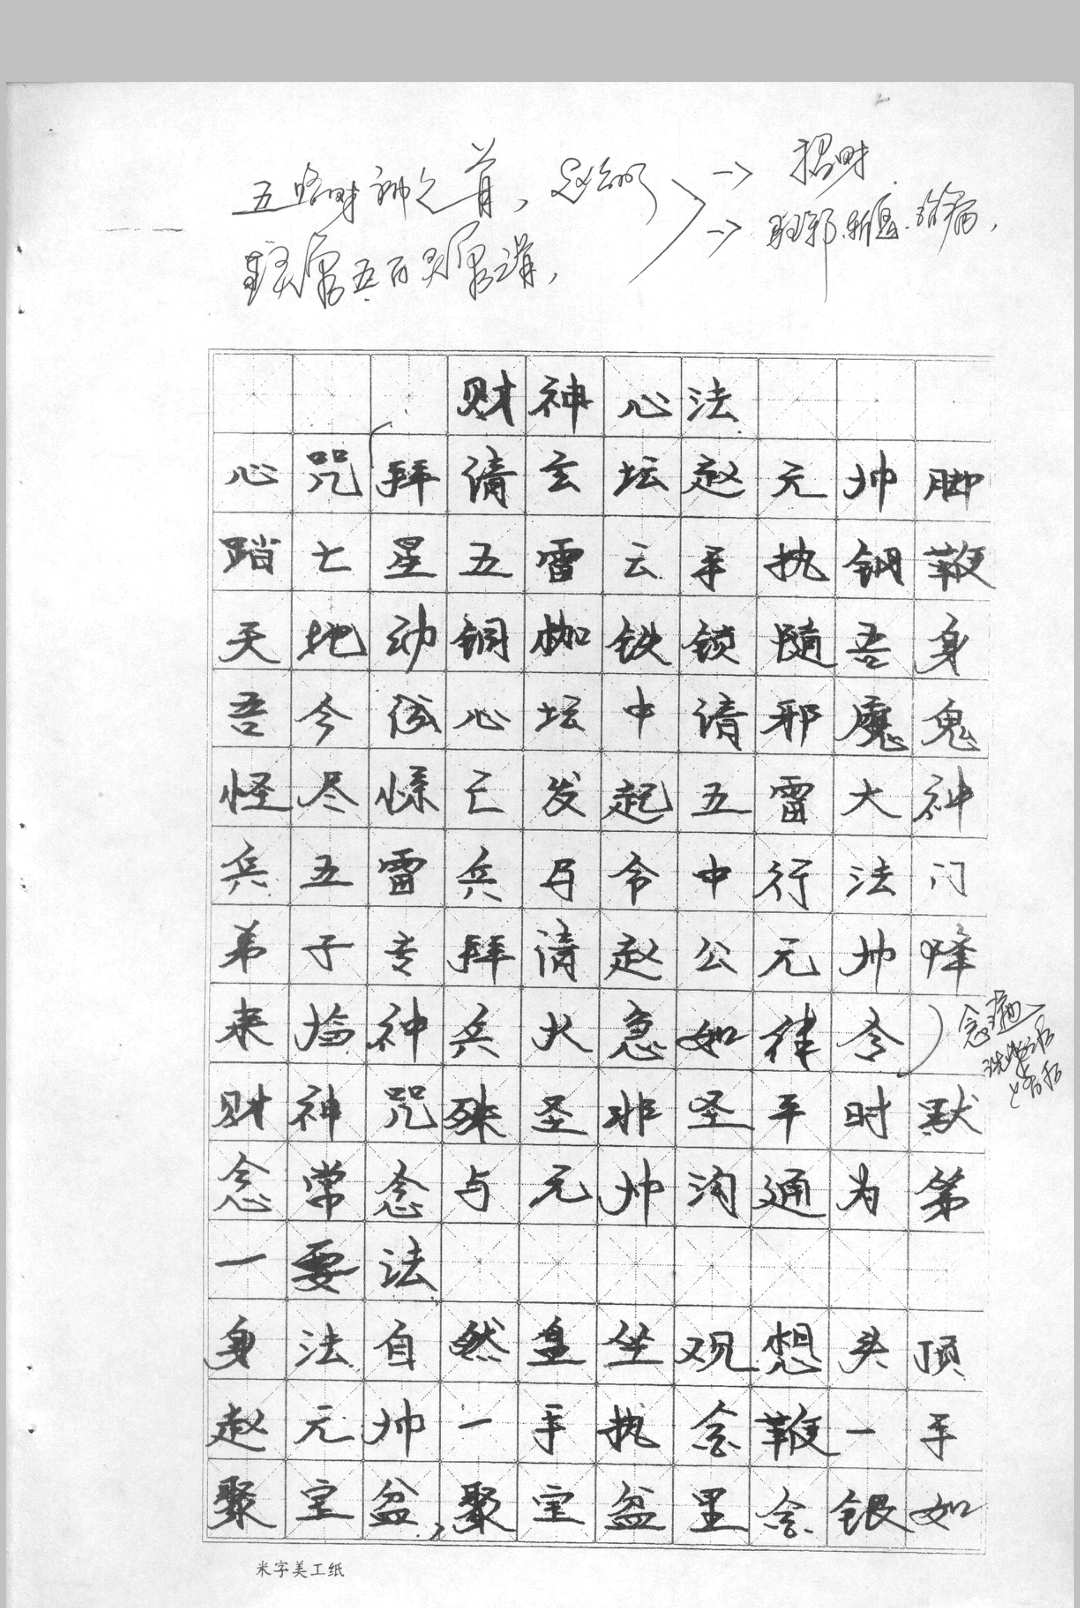 五路财神之首，赵公明 → 招财
→ 驱邪.斩鬼.治病，
财神心法
心咒拜请玄坛赵元帅脚
踏七星五雷云手执钢鞭
天地动铜枷铁锁随吾身
吾今法心坛中请邪魔鬼
怪尽悉亡发起五雷大神
兵五雷兵马令中行法门
弟子专拜请赵公元帅降
来临神兵火急如律令
财神咒殊圣非圣平时默
念常念与元帅沟通为第
一要法
身法自然盘坐观想头顶
赵元帅一手执金鞭一手
聚宝盆，聚宝盆里金银如
米字美工纸